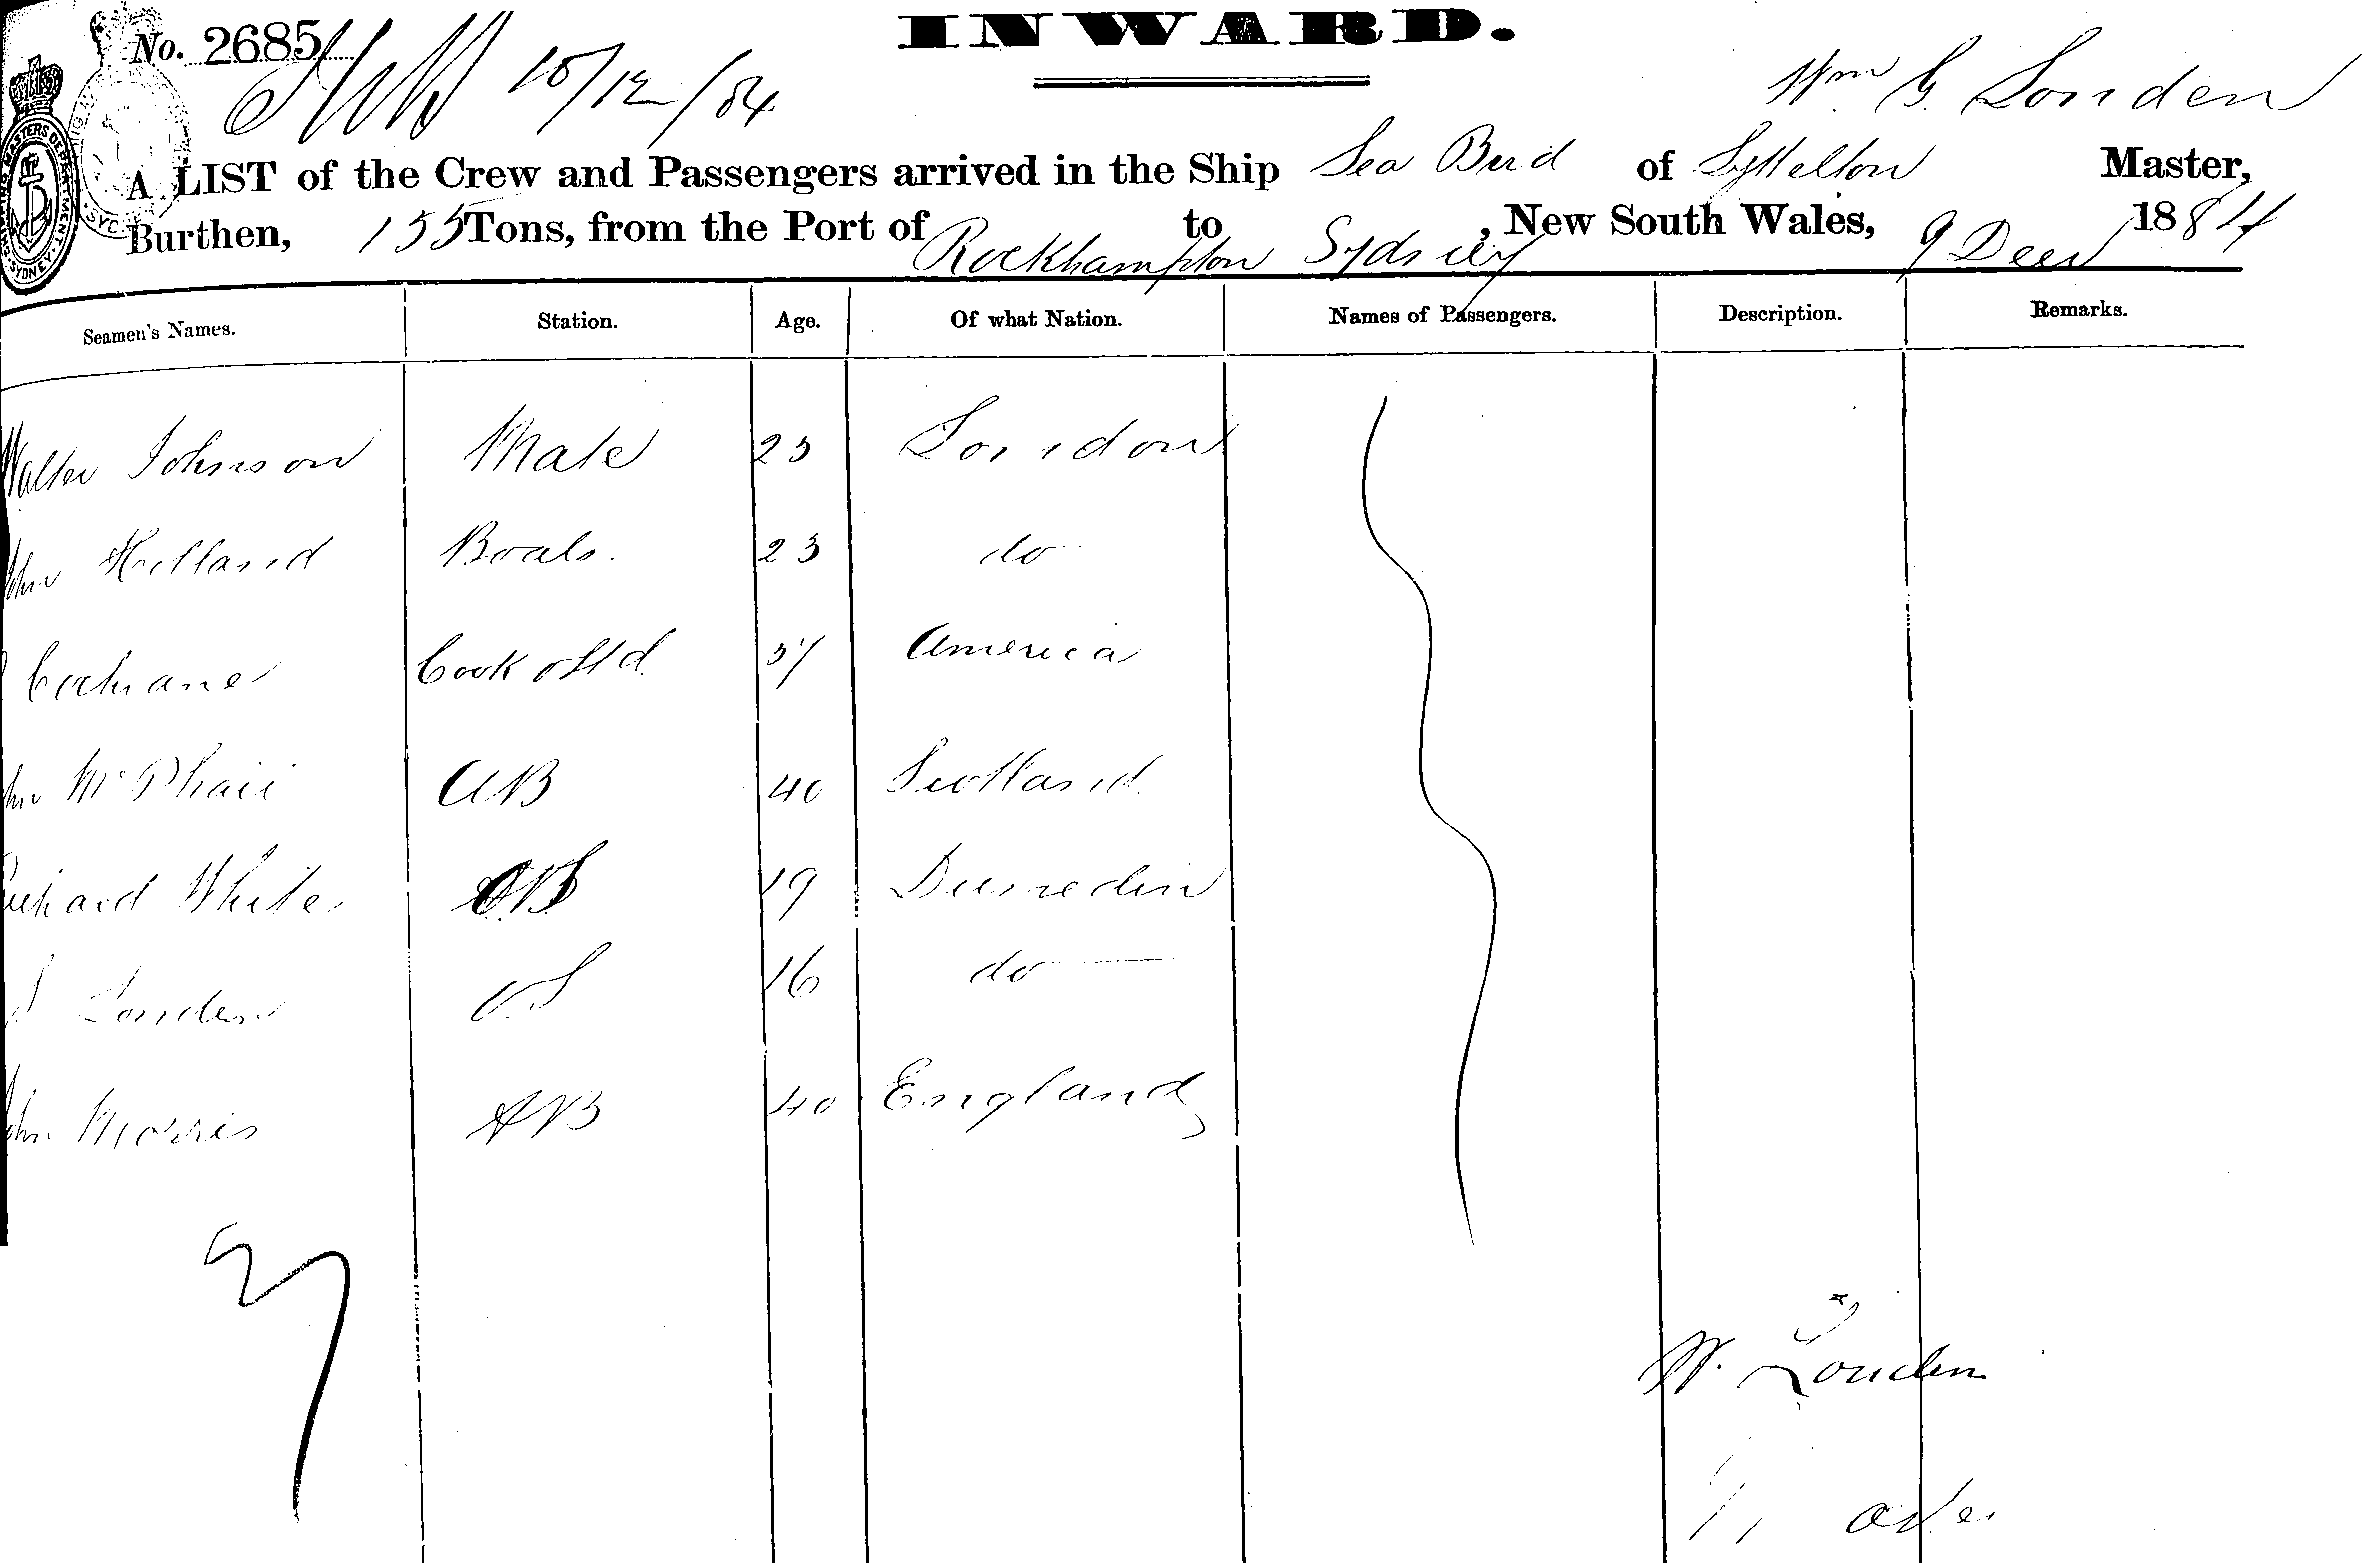 INWARD.
No. 2685
10/12/84
Wm G. Louden
A LIST of the Crew and Passengers arrived in the Ship Sea Bird of Lyttelton Master,
Burthen, 155 Tons, from the Port of Rockhampton to Sydney, New South Wales, 9 Decr 1884
Seamen's Names. Station. Age. Of what Nation. Names of Passengers. Description. Remarks.
Walter Johnson Mate 23 London
John Holland Boats. 23 do
Cochrane Cook & Std. America
John McPhail AB 40 Scotland
Richard White OS 19 Dunedin
Louden O.S 16 do
John Morris AB 40 England
W. Louden